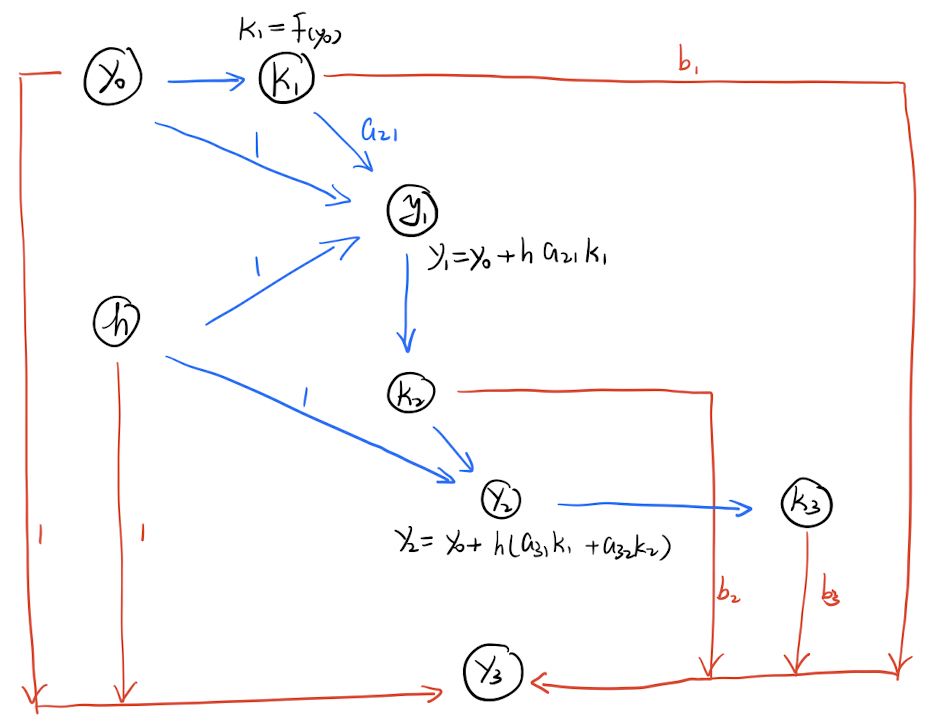 k₁ = f(y₀)
y₀
k₁
b₁
1
a₂₁
y₁
y₁ = y₀ + h a₂₁ k₁
1
h
1
k₂
y₂
k₃
y₂ = y₀ + h(a₃₁k₁ + a₃₂k₂)
1
1
b₂
b₃
y₃